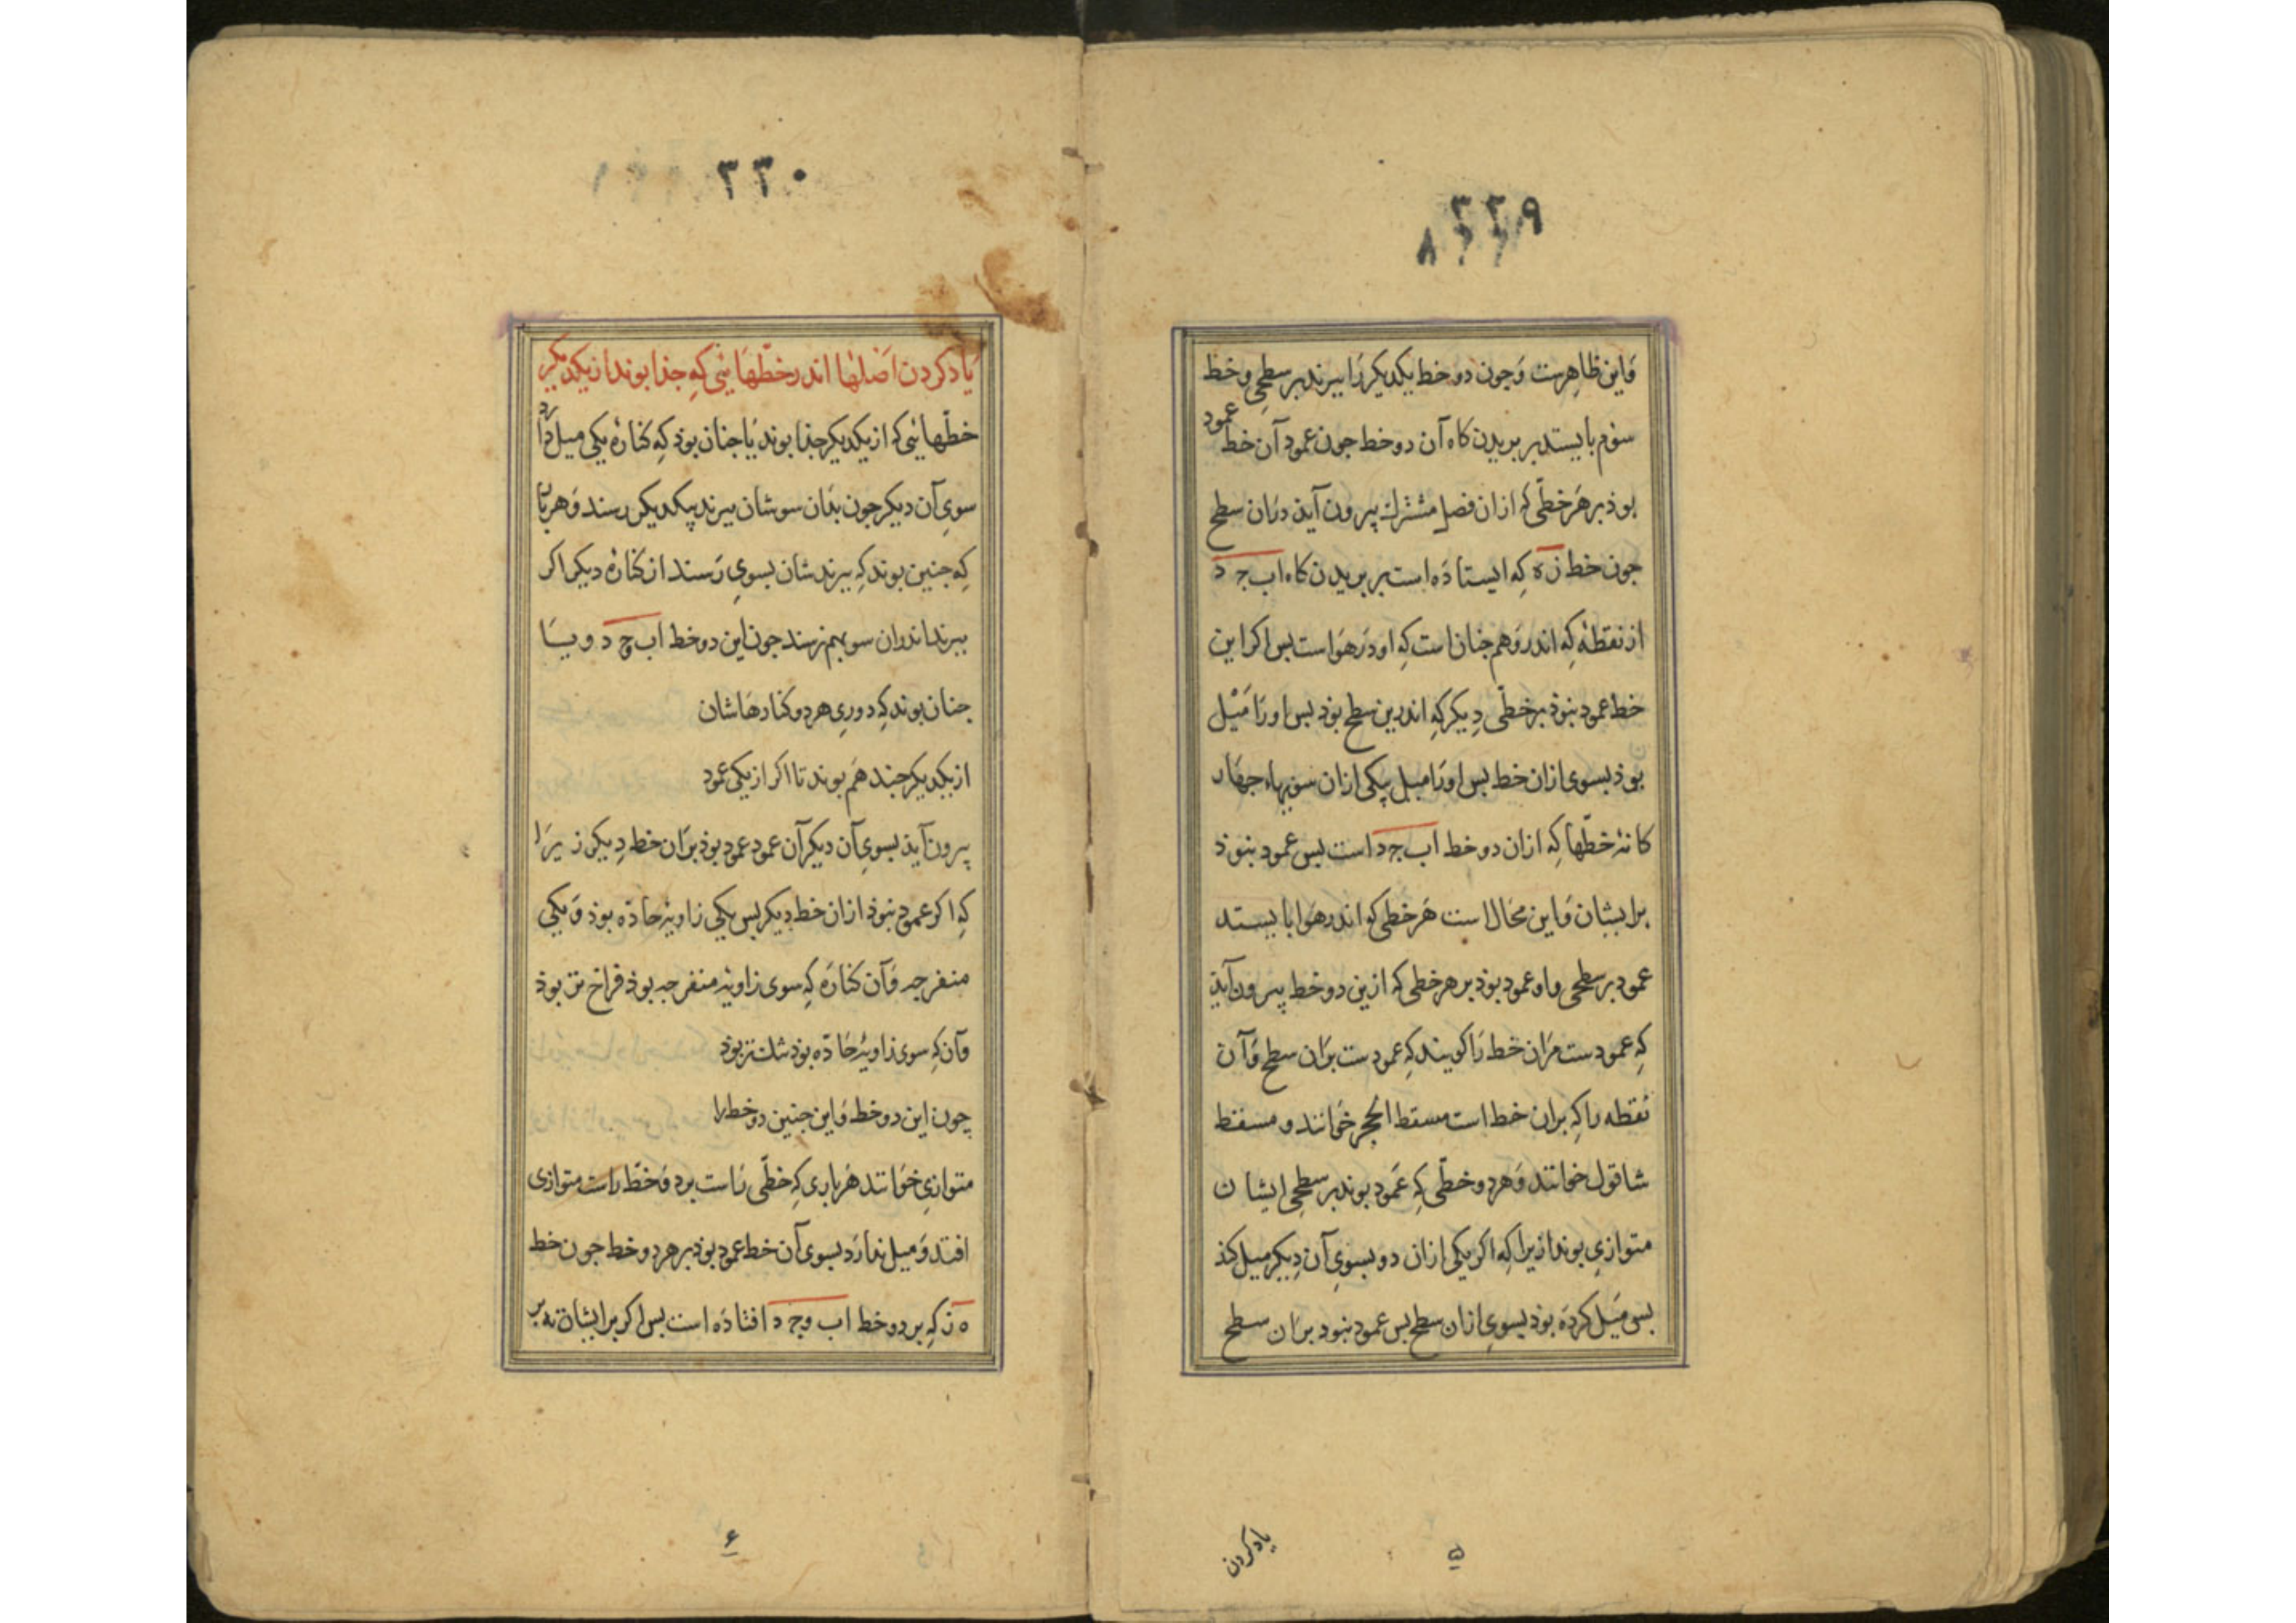 ۳۲۹
۸۲۲
واین ظاهرست وجون دو خط یکدیکر را ببرند بر سطحی وخط
سوم بایستد بر بریدن کاه آن دو خط جون عمود آن خط عمود
بوذ بر هر خطی که ازان فصل مشترك بیرون آیذ دران سطح
جون خط زه که ایستاذه است بر بریدن کاه اب جد
از نقطهٔ که اندر وهم جنان است که او در هواست بس اکر این
خط عمود نبوذ بر خطی دیکر که اندرین سطح بوذ بس اورا میل
بوذ بسوی ازان خط بس اورا میل بیکی ازان سویهاء جهار
کانهٔ خطها که ازان دو خط اب جد است بس عمود نبوذ
برایشان واین محال است هر خطی که اندر هوا بایستد
عمود بر سطحی واو عمود بوذ بر هر خطی که ازین دو خط بیرون آیذ
که عمودست مران خط را کویند که عمودست بران سطح وآن
نقطه را که بران خط است مسقط الحجر خوانند و مسقط
شاقول خوانند وهر دو خطی که عمود بوند بر سطحی ایشان
متوازی بوند ازیرا که اکر یکی ازان دو بسوی آن دیکر میل کند
بس میل کرده بوذ بسوی ازان سطح بس عمود نبود بران سطح
یاد کردن
۵
۳۳۰
یاد کردن اصلها اندر خطهائی که جذا بوند از یکدیکر
خطهائی که از یکدیکر جذا بوند یا جنان بوذ که کنارهٔ یکی میل دارد
سوی آن دیکر جون بذان سوشان ببرند بیکدیکر رسند وهر باری
که جنین بوند که ببرندشان بسوی رسند از کنارهٔ دیکر اکر
ببرند اندران سو بهم نرسند جون این دو خط اب ج د و یا
جنان بوند که دوری هر دو کنارهاشان
از یکدیکر جند هم بوند تا اکر از یکی عمود
بیرون آیذ بسوی آن دیکر آن عمود عمود بوذ بران خط دیکر زیرا
که اکر عمود نبوذ ازان خط دیکر بس یکی زاویهٔ حاده بوذ ویکی
منفرجه وآن کناره که سوی زاویهٔ منفرجه بوذ فراخ تر بوذ
وآن که سوی زاویهٔ حاده بوذ تنك تر بوذ
چون این دو خط واین جنین دو خط را
متوازی خوانند هر باری که خطی راست برد وخط راست متوازی
افتد ومیل ندارد بسوی آن خط عمود بوذ بر هر دو خط جون خط
ه ز که بر دو خط اب وجد افتاده است بس اکر بر ایشان نه بر
۶